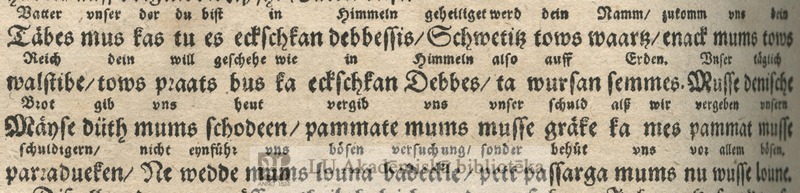 Vatter vnser der du bist in Himmeln geheiliget werd dein Namm/ zukomm vns dein
Täbes mus kas tu es eckschkan debbessis/ Schwetitz tows waartz/ enack mums tows
Reich dein will geschehe wie in Himmeln also auff Erden. Vnser täglich
walstibe/ tows praats bus ka eckschkan Debbes/ ta wursan semmes. Musse denische
Brot gib vns heut vergib vns vnser schuld alß wir vergeben vnsern
Mäyse düth mums schodeen/ pammate mums musse gräke ka mes pammat musse
schuldigern/ nicht eynführ vns bösen versuchung/ sonder behüt vns vor allem bösen.
parradueken/ Ne wedde mums louna badeckle/ pett passarga mums nu wusse loune.
LU Akadēmiskā bibliotēka